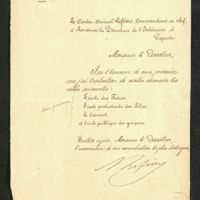 Le Contre-Amiral Lefèvre, Commandant en Chef,
à Monsieur le Directeur de l'Intérieur à
Papeete
Monsieur le Directeur,
J'ai l'honneur de vous
que j'ai l'intention de visiter demain les
écoles suivantes :
l'école des Frères,
l'école protestante des filles
le Couvent
et l'école publique des garçons.
Veuillez agréer, Monsieur le Directeur,
l'assurance de ma considération la plus distinguée.